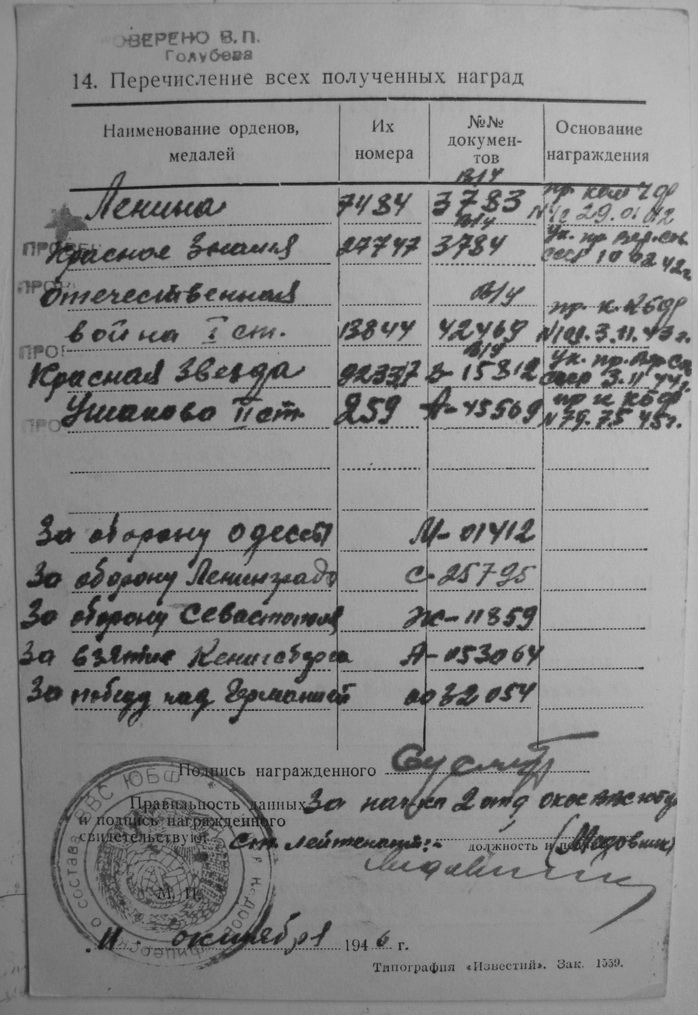 ОВЕРЕНО В. П.
Голубева
14. Перечисление всех полученных наград
Наименование орденов, медалей
Их номера
№№ документов
Основание награждения
Ленина 7484 в/ч 3783 пр. ком 29. 01
Красное Знамя 27747 в/ч 3784 Ук. пр. Вер. Сов. СССР 10 02 42 г.
Отечественная в/ч пр. к.
война I ст. 13844 42469 3. 11. 43 г.
Красная Звезда 92337 в/ч 15812 Ук. пр. СССР 3. 11 44 г.
Ушаково II ст. 259 А-45569 пр. к КБФ № 75. 7 5 45 г.
За оборону Одессы М-01412
За оборону Ленинграда С-25795
За оборону Севастополя Ж-11859
За взятие Кенигсберга А-053064
За победу над Германией 0032054
Подпись награжденного
Правильность данных За нач-ка 2 отд
и подпись награжденного
свидетельствуют Ст. лейтенант:- должность и (Медовник)
М. П.
11. октября 1946 г.
Типография «Известий». Зак. 1559.